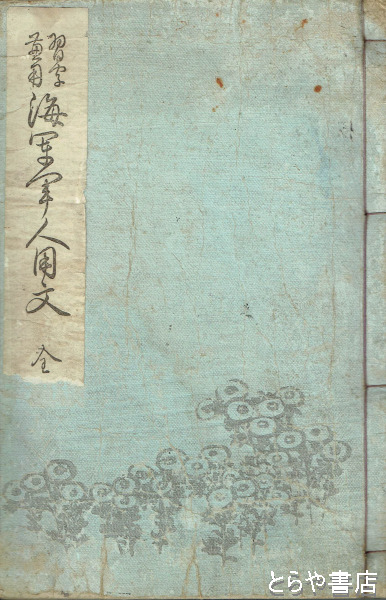 習字
兼用
海軍軍人用文
全
とらや書店